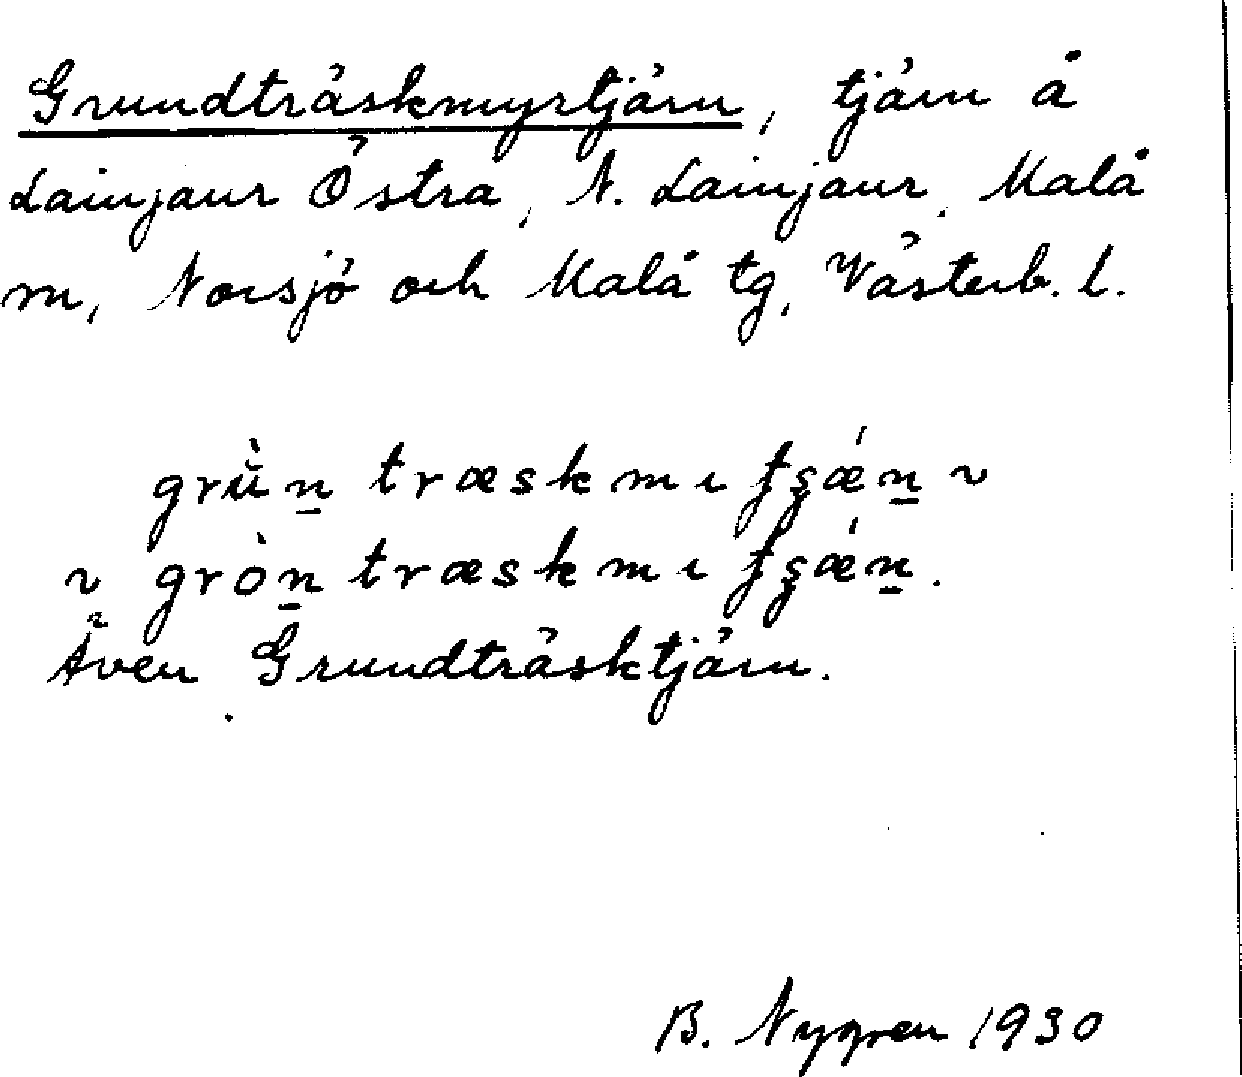 Grundträskmyrtjärn, tjärn å
Lainjaur Östra, N. Lainjaur, Malå
m, Norsjö och Malå tg, Västerb. l.
grù̆n̲ træskmɩ ʈʂǽn̲ ~
~ gròn̲ træskmɩ ʈʂǽn̲.
Även Grundträsktjärn.
B. Nygren 1930